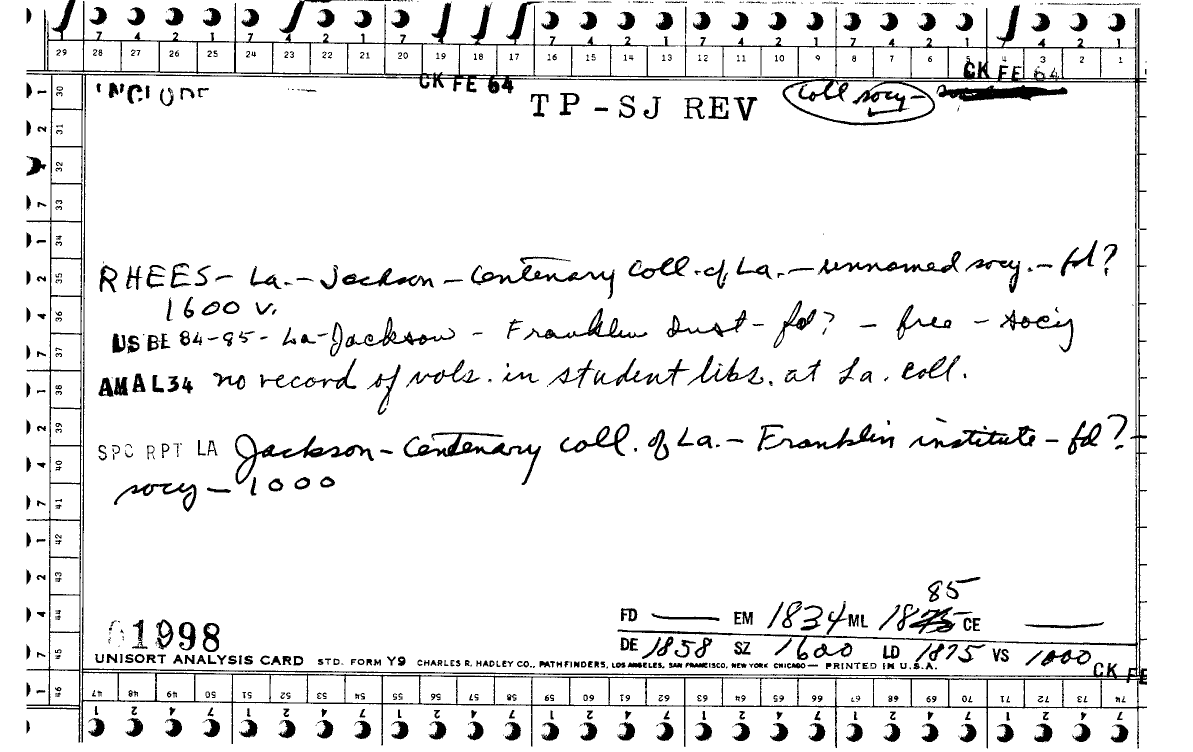 7 4 2 1 7 4 2 1 7 4 2 1 7 4 2 1 7 4 2 1 7 4 2 1 7 4 2 1
29 28 27 26 25 24 23 22 21 20 19 18 17 16 15 14 13 12 11 10 9 8 7 6 5 4 3 2 1
CK FE 64
CK FE 64
INCLUDE
TP-SJ REV
Coll socy-
RHEES - La. - Jackson - Centenary Coll. of La. - unnamed socy. - fd?
1600 v.
USBE 84-85 - La-Jackson - Franklin Inst - fd? - free - socy
AMAL34 no record of vols. in student libs. at La. Coll.
SPC RPT LA Jackson - Centenary coll. of La. - Franklin institute - fd? -
socy - 1000
85
FD — EM 1834 ML 1875 CE —
DE 1858 SZ 1600 LD 1875 VS 1000
01998
UNISORT ANALYSIS CARD STD. FORM Y9 CHARLES R. HADLEY CO., PATHFINDERS, LOS ANGELES, SAN FRANCISCO, NEW YORK CHICAGO — PRINTED IN U.S.A.
CK FE
30 31 32 33 34 35 36 37 38 39 40 41 42 43 44 45 46
47 48 49 50 51 52 53 54 55 56 57 58 59 60 61 62 63 64 65 66 67 68 69 70 71 72 73 74
1 2 4 7 1 2 4 7 1 2 4 7 1 2 4 7 1 2 4 7 1 2 4 7 1 2 4 7